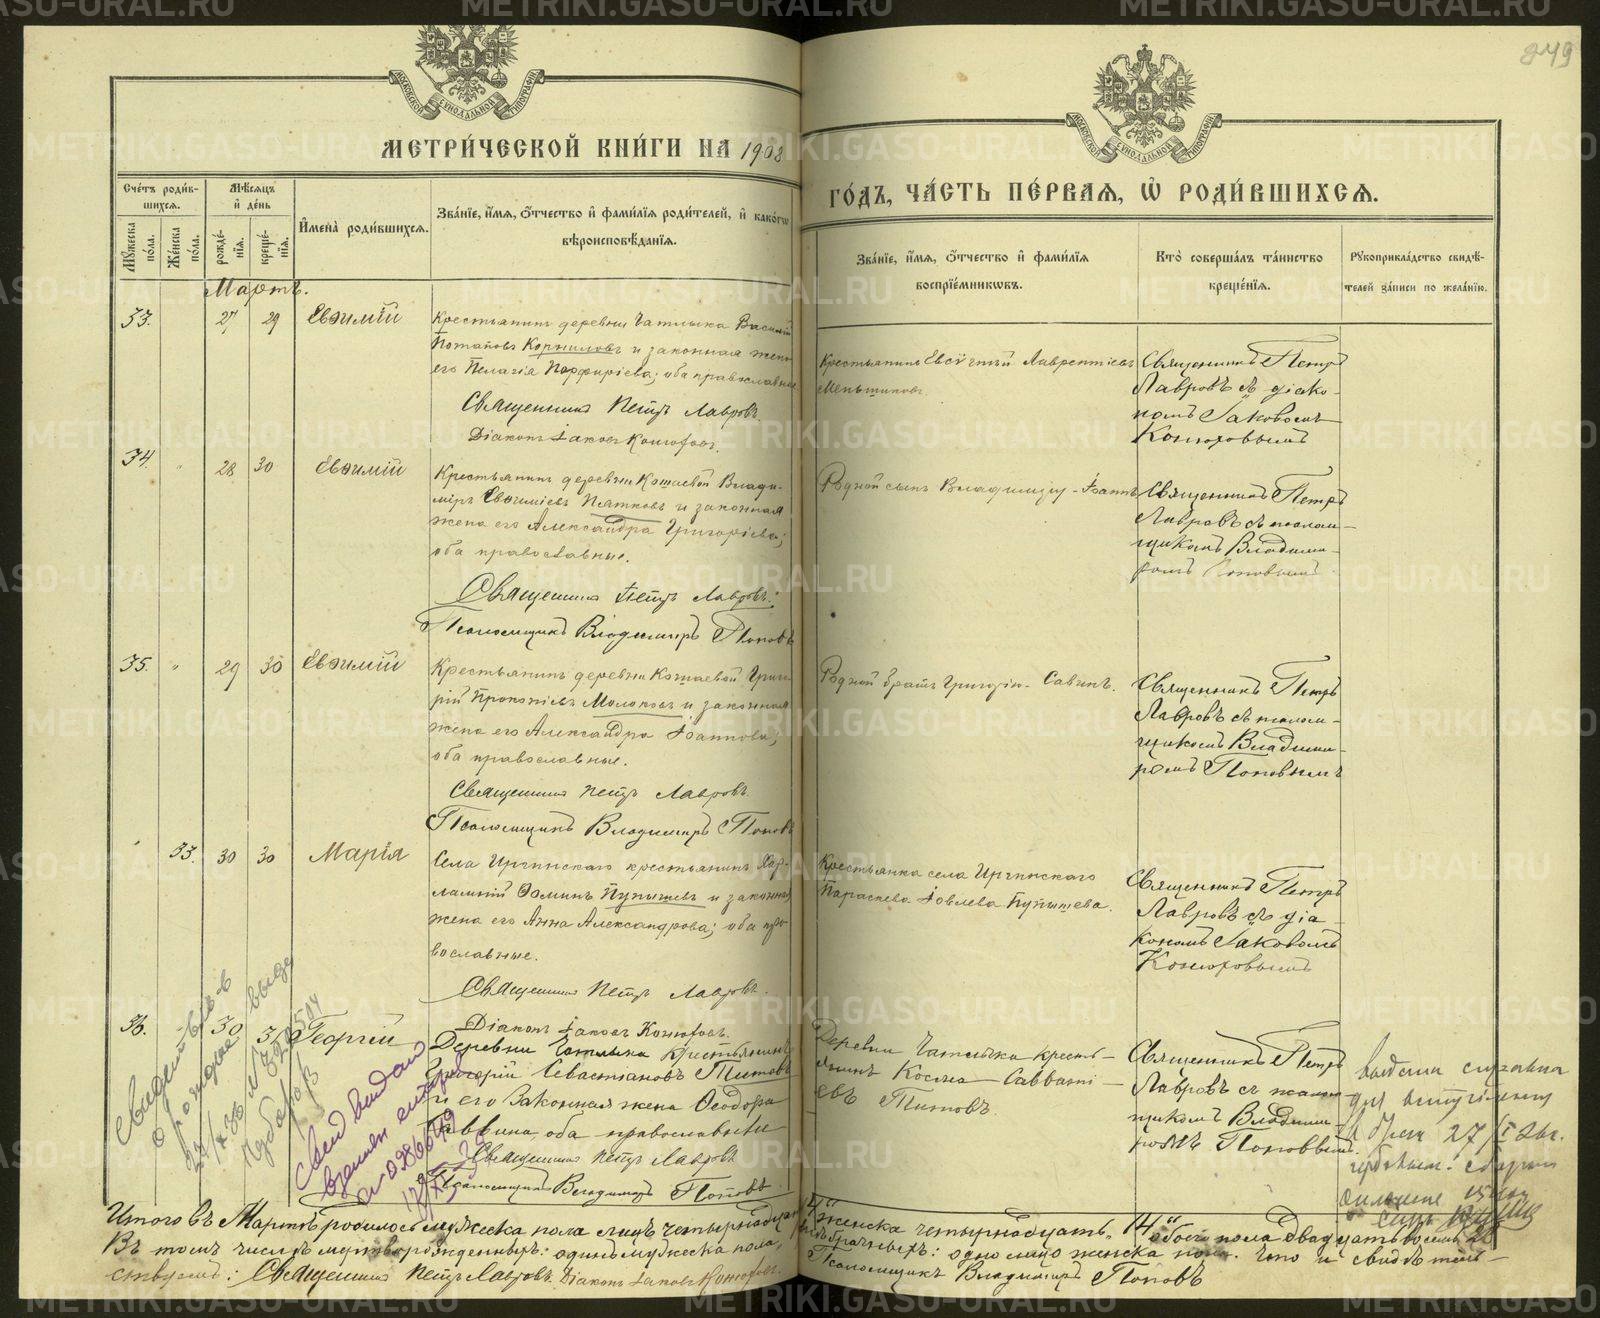 849
МОСКОВСКОЙ СѴНОДАЛЬНОЙ ТИПОГРАФІИ
МОСКОВСКОЙ СѴНОДАЛЬНОЙ ТИПОГРАФІИ
МЕТРИ́ЧЕСКОЙ КНИ́ГИ НА 1908
ГО́ДЪ, ЧА́СТЬ ПЕ́РВАЯ, Ѡ҆ РОДИ́ВШИХСЯ.
Сче́тъ роди́вшихся.
Мꙋ́жеска по́ла.
Же́нска по́ла.
Мѣ́сяцъ и҆ де́нь
рожде́нїя.
креще́нїя.
И҆мена̀ роди́вшихся.
Зва́нїе, и҆́мя, ѻ҆́тчество и҆ фами́лїя роди́телей, и҆ како́гѡ
вѣроисповѣ́данїя.
Зва́нїе, и҆́мя, ѻ҆́тчество и҆ фами́лїя
воспрїе́мникѡвъ.
Кто̀ соверша́лъ та́инство
креще́нїя.
Рꙋкоприкла́дство свидѣ́-
телей за́писи по жела́нїю.
Мартъ.
33. 27 29 Евѳимій
Крестьянинъ деревни Чатлыка Василій
Потаповъ Корниловъ и законная жена
его Пелагія Порфиріева; оба православные
Священникъ Петръ Лавровъ.
Діаконъ Іаковъ Конюховъ.
Крестьянинъ Евсігній Лаврентіевъ
Меньшиковъ.
Священникъ Петръ
Лавровъ съ діако-
номъ Іаковомъ
Конюховымъ
34. " 28 30 Евѳимій
Крестьянинъ деревни Кошаевой Влади-
міръ Евѳиміевъ Пятковъ и законная
жена его Александра Григоріева;
оба православные.
Священникъ Петръ Лавровъ.
Псаломщикъ Владиміръ Поповъ
Родной сынъ Владиміру - Іоаннъ
Священникъ Петръ
Лавровъ съ псалом-
щикомъ Владими-
ромъ Поповымъ.
35. " 29 30 Евѳимій
Крестьянинъ деревни Кошаевой Григо-
рій Прокопіевъ Молоковъ и законная
жена его Александра Іоаннова;
оба православные.
Священникъ Петръ Лавровъ.
Псаломщикъ Владиміръ Поповъ
Родной братъ Григорію - Савинъ.
Священникъ Петръ
Лавровъ съ псалом-
щикомъ Владими-
ромъ Поповымъ
33. 30 30 Марія
Села Иргинскаго крестьянинъ Хар-
лампій Ѳоминъ Пупышевъ и законная
жена его Анна Александрова; оба пра-
вославные.
Священникъ Петръ Лавровъ.
Діаконъ Іаковъ Конюховъ.
Крестьянка села Иргинскаго
Параскева Іовлева Пупышева.
Священникъ Петръ
Лавровъ съ діа-
кономъ Іаковомъ
Конюховымъ
36. 30 Георгій
Деревни Чатлыка крестьянинъ
Григорій Севастіановъ Титовъ
и его законная жена Ѳеодора
оба православные
Священникъ Петръ Лавровъ
Псаломщикъ Владиміръ Поповъ.
Деревни Чатлыка кресть-
янинъ Косма Савваті-
евъ Титовъ.
Священникъ Петръ
Лавровъ съ псалом-
щикомъ Владими-
ромъ Поповымъ.
Свидетель-в
о рождае
выдано
справка
27
Итого въ Мартѣ родилось мужеска пола лицъ четырнадцать "14" женска четырнадцать, "14" обоего пола двадцать восемь 28
Въ томъ числѣ мертворожденныхъ: одинъ мужеска пола, внѣбрачныхъ: одно лицо женска пола. Что и свидѣтель-
ствуемъ: Священникъ Петръ Лавровъ. Діаконъ Іаковъ Конюховъ. Псаломщикъ Владиміръ Поповъ
METRIKI.GASO-URAL.RU